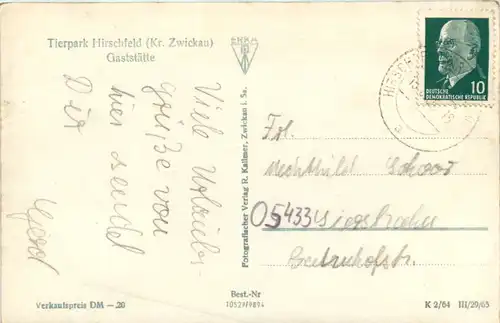 Tierpark Hirschfeld (Kr. Zwickau)
Gaststätte
ERKA
Viele Urlaubs-
grüße von
hier sendet
Dir
DEUTSCHE
DEMOKRATISCHE REPUBLIK
10
Frl.
Mechthild
5433
Bahnhofstr.
Fotografischer Verlag R. Kallmer, Zwickau i. Sa.
Verkaufspreis DM -.20
Best.-Nr
K 2/64 III/29/65